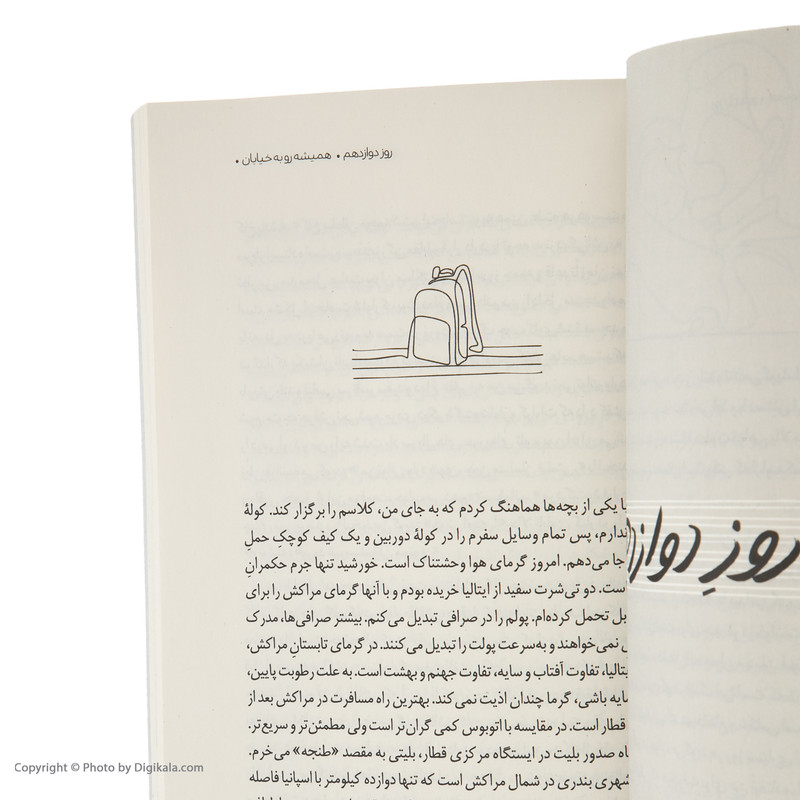 روز دوازدهم • همیشه رو به خیابان •
با یکی از بچه‌ها هماهنگ کردم که به جای من، کلاسم را برگزار کند. کولهٔ
ندارم، پس تمام وسایل سفرم را در کولهٔ دوربین و یک کیف کوچکِ حملِ
جا می‌دهم. امروز گرمای هوا وحشتناک است. خورشید تنها جرم حکمرانِ
است. دو تی‌شرت سفید از ایتالیا خریده بودم و با آنها گرمای مراکش را برای
تحمل کرده‌ام. پولم را در صرافی تبدیل می‌کنم. بیشتر صرافی‌ها، مدرک
نمی‌خواهند و به‌سرعت پولت را تبدیل می‌کنند. در گرمای تابستانِ مراکش،
تفاوت آفتاب و سایه، تفاوت جهنم و بهشت است. به علت رطوبت پایین،
باشی، گرما چندان اذیت نمی‌کند. بهترین راه مسافرت در مراکش بعد از
قطار است. در مقایسه با اتوبوس کمی گران‌تر است ولی مطمئن‌تر و سریع‌تر.
صدور بلیت در ایستگاه مرکزی قطار، بلیتی به مقصد «طنجه» می‌خرم.
شهری بندری در شمال مراکش است که تنها دوازده کیلومتر با اسپانیا فاصله
روزِ
Copyright © Photo by Digikala.com